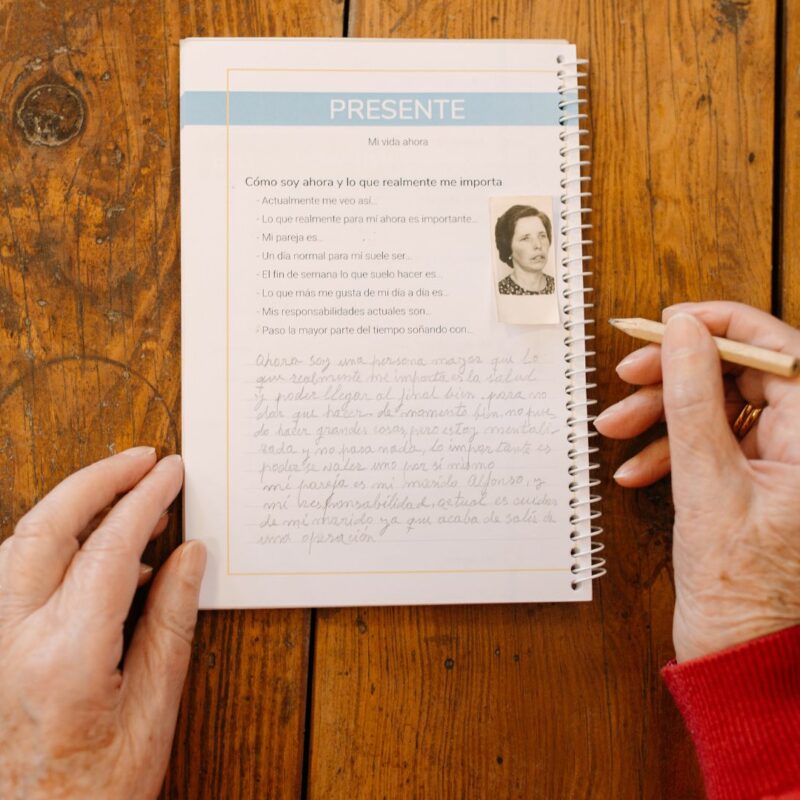 PRESENTE
Mi vida ahora
Cómo soy ahora y lo que realmente me importa
- Actualmente me veo así...
- Lo que realmente para mí ahora es importante...
- Mi pareja es...
- Un día normal para mí suele ser...
- El fin de semana lo que suelo hacer es...
- Lo que más me gusta de mi día a día es...
- Mis responsabilidades actuales son...
- Paso la mayor parte del tiempo soñando con...
Ahora soy una persona mayor que lo
que realmente me importa es la salud
y poder llegar al final bien para no
dar que hacer de momento bien, no pue
do hacer grandes cosas pero estoy mentali
zada y no pasa nada, lo importante es
poder se valer uno por sí mismo
mi pareja es mi marido Alfonso, y
mi responsabilidad, actual es cuidar
de mi marido ya que acaba de salir de
una operación